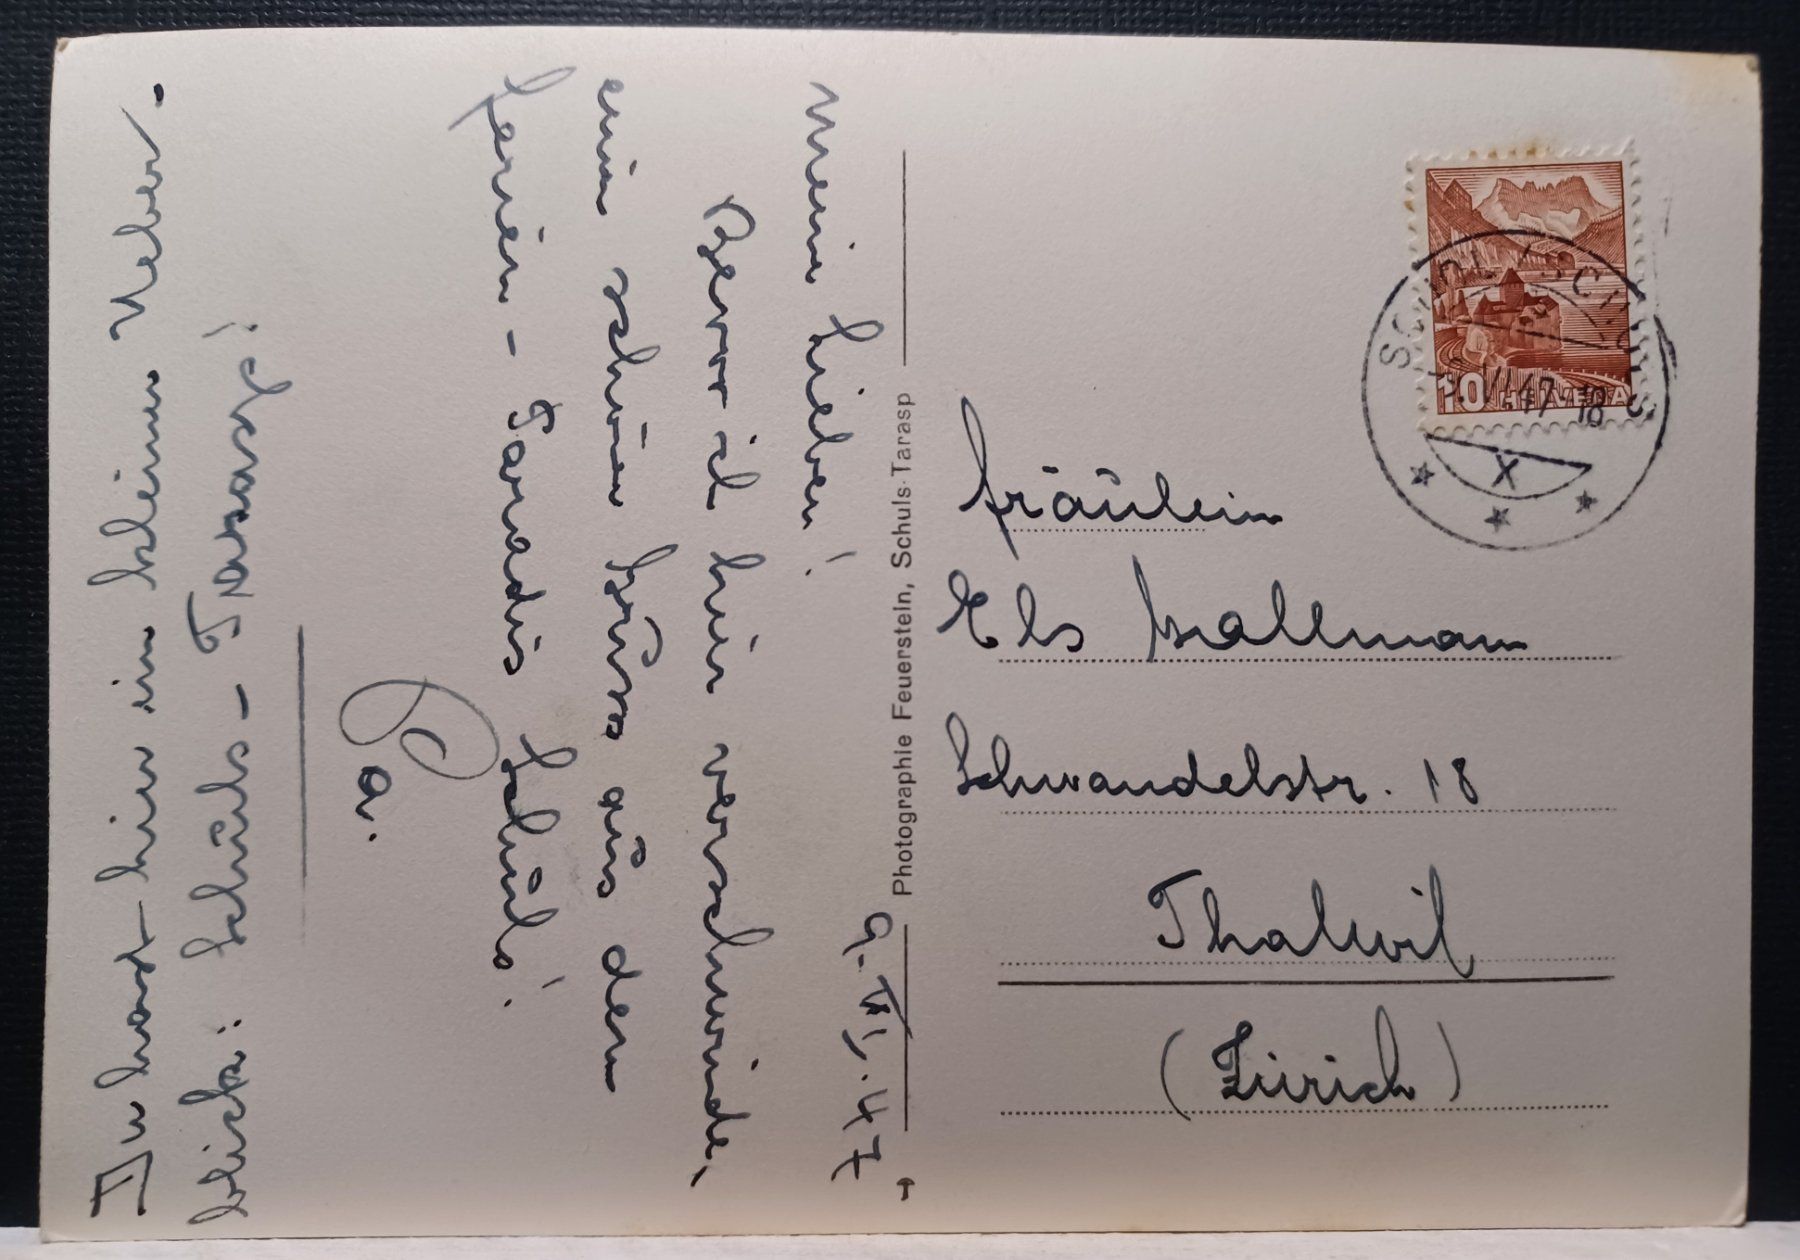 9. VI. 47
Meine Lieben!
Bevor ich hier verschwinde,
ein schöner Gruss aus dem
Ferien - Paradis Schuls!
Pa.
Du hast hier im kleinen Ueber.
blick: Schuls - Tarasp!
Photographie Feuerstein, Schuls-Tarasp
10 HELVETIA
SCUOL / SCHULS
VI.47-18
X
Fräulein
Els Wallmann
Schwandelstr. 18
Thalwil
(Zürich)